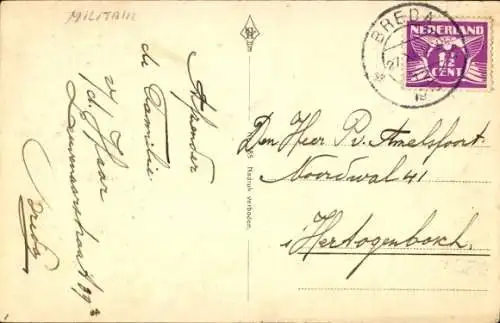 MILITAIR
Afzender
de Familie
v/d. Haar
Leuvensorstraat 39
Breda
Nadruk verboden.
BREDA
NEDERLAND
1½
CENT
Den Heer P. v. Amelsfoort.
Noordwal 41
's Hertogenbosch.